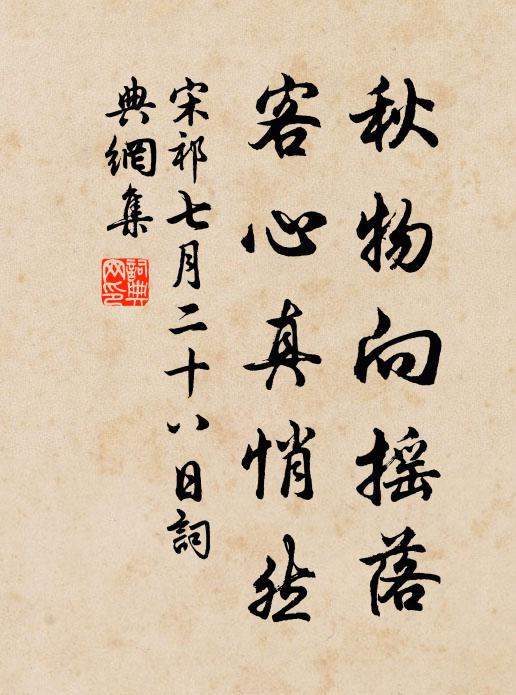 秋物向摇落
客心真悄然
宋祁七月二十八日詞
典網集
詞典
网印